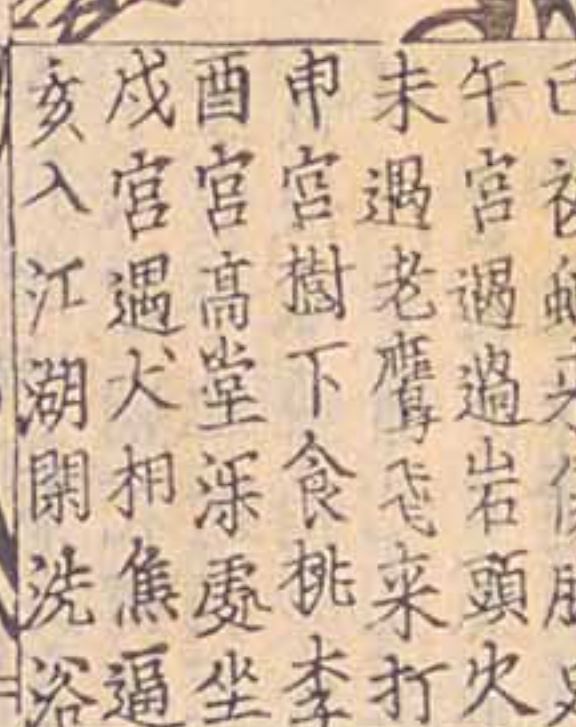 午宮遇過岩頭火
未遇老鷹飛来打
申宮樹下食桃李
酉宮高堂深處坐
戌宮遇犬相焦逼
亥入江湖閑洗浴